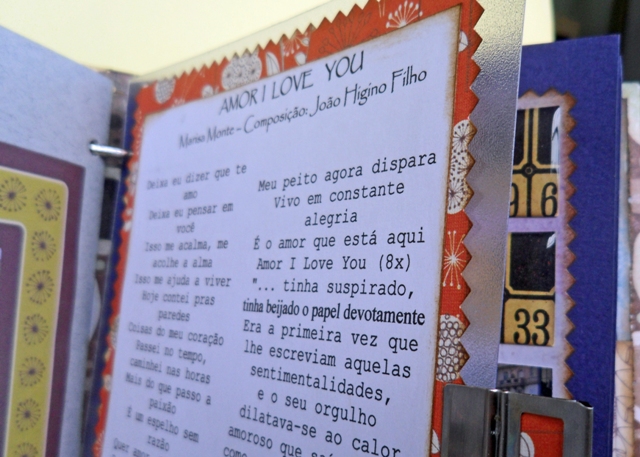 AMOR I LOVE YOU
Marisa Monte - Composição: João Higino Filho
Deixa eu dizer que te
amo
Deixa eu pensar em
você
Isso me acalma, me
acolhe a alma
Isso me ajuda a viver
Hoje contei pras
paredes
Coisas do meu coração
Passei no tempo,
caminhei nas horas
Mais do que passo a
paixão
É um espelho sem
razão
Quer amor
Meu peito agora dispara
Vivo em constante
alegria
É o amor que está aqui
Amor I Love You (8x)
"... tinha suspirado,
tinha beijado o papel devotamente
Era a primeira vez que
lhe escreviam aquelas
sentimentalidades,
e o seu orgulho
dilatava-se ao calor
amoroso que
96
33